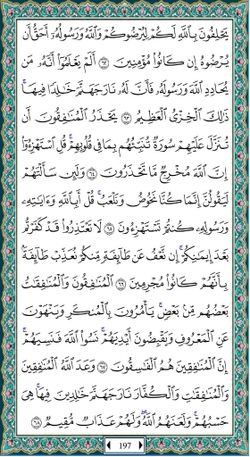 يَحْلِفُونَ بِٱللَّهِ لَكُمْ لِيُرْضُوكُمْ وَٱللَّهُ وَرَسُولُهُۥٓ أَحَقُّ أَن
يُرْضُوهُ إِن كَانُوا۟ مُؤْمِنِينَ ٦٢ أَلَمْ يَعْلَمُوٓا۟ أَنَّهُۥ مَن
يُحَادِدِ ٱللَّهَ وَرَسُولَهُۥ فَأَنَّ لَهُۥ نَارَ جَهَنَّمَ خَٰلِدًا فِيهَا ۚ
ذَٰلِكَ ٱلْخِزْىُ ٱلْعَظِيمُ ٦٣ يَحْذَرُ ٱلْمُنَٰفِقُونَ أَن
تُنَزَّلَ عَلَيْهِمْ سُورَةٌ تُنَبِّئُهُم بِمَا فِى قُلُوبِهِمْ ۚ قُلِ ٱسْتَهْزِءُوٓا۟
إِنَّ ٱللَّهَ مُخْرِجٌ مَّا تَحْذَرُونَ ٦٤ وَلَئِن سَأَلْتَهُمْ
لَيَقُولُنَّ إِنَّمَا كُنَّا نَخُوضُ وَنَلْعَبُ ۚ قُلْ أَبِٱللَّهِ وَءَايَٰتِهِۦ
وَرَسُولِهِۦ كُنتُمْ تَسْتَهْزِءُونَ ٦٥ لَا تَعْتَذِرُوا۟ قَدْ كَفَرْتُم
بَعْدَ إِيمَٰنِكُمْ ۚ إِن نَّعْفُ عَن طَآئِفَةٍ مِّنكُمْ نُعَذِّبْ طَآئِفَةًۢ
بِأَنَّهُمْ كَانُوا۟ مُجْرِمِينَ ٦٦ ٱلْمُنَٰفِقُونَ وَٱلْمُنَٰفِقَٰتُ
بَعْضُهُم مِّنۢ بَعْضٍ ۚ يَأْمُرُونَ بِٱلْمُنكَرِ وَيَنْهَوْنَ
عَنِ ٱلْمَعْرُوفِ وَيَقْبِضُونَ أَيْدِيَهُمْ ۚ نَسُوا۟ ٱللَّهَ فَنَسِيَهُمْ ۗ
إِنَّ ٱلْمُنَٰفِقِينَ هُمُ ٱلْفَٰسِقُونَ ٦٧ وَعَدَ ٱللَّهُ ٱلْمُنَٰفِقِينَ
وَٱلْمُنَٰفِقَٰتِ وَٱلْكُفَّارَ نَارَ جَهَنَّمَ خَٰلِدِينَ فِيهَا ۚ هِىَ
حَسْبُهُمْ ۚ وَلَعَنَهُمُ ٱللَّهُ ۖ وَلَهُمْ عَذَابٌ مُّقِيمٌ ٦٨
197